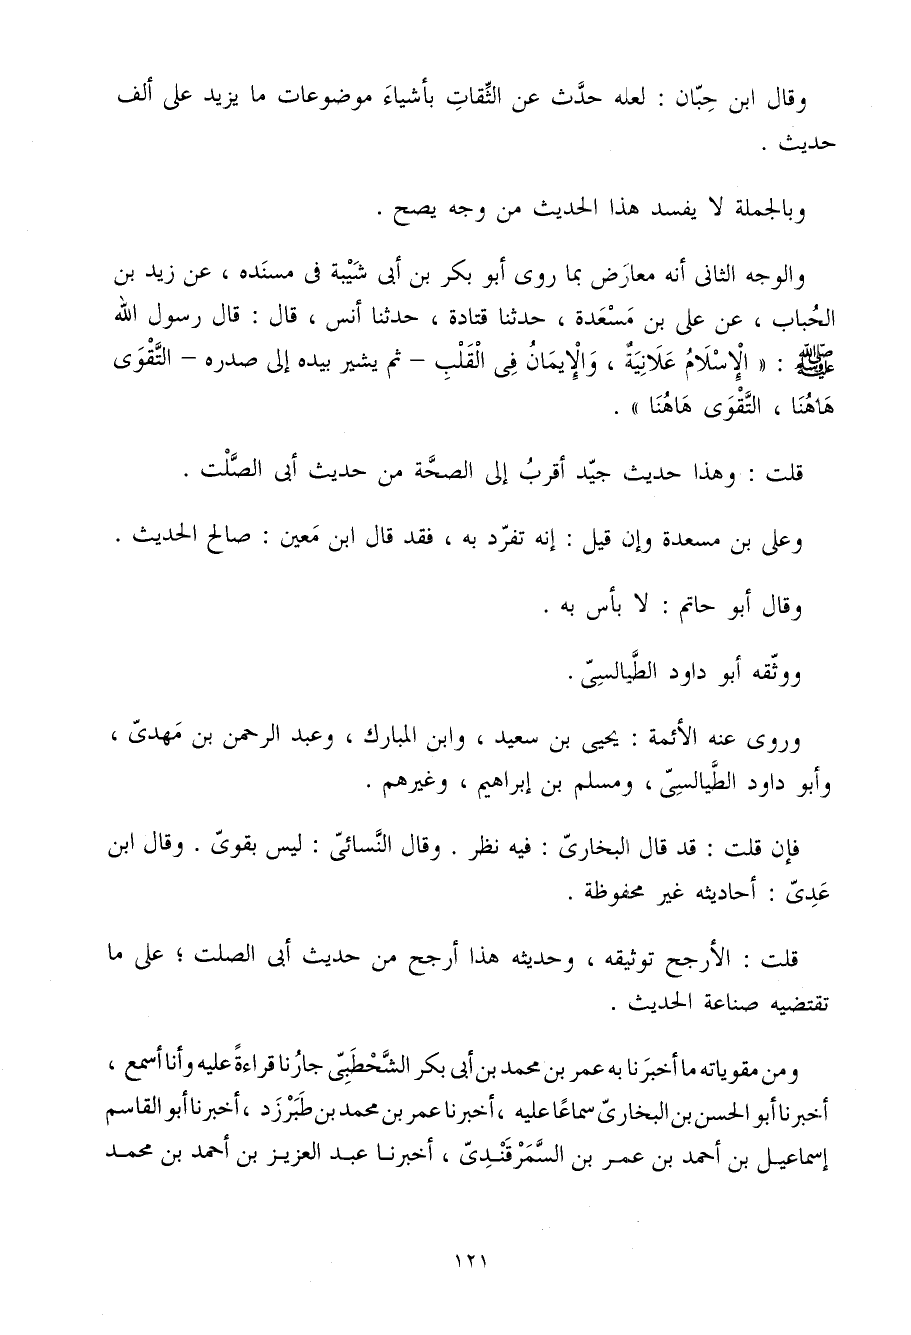 وقال ابن حِبّان : لعله حدَّث عن الثِّقاتِ بأشياءَ موضوعات ما يزيد على ألف
حديث .
وبالجملة لا يفسد هذا الحديث من وجه يصح .
والوجه الثانى أنه معارَض بما روى أبو بكر بن أبى شَيْبة فى مسنَده ، عن زيد بن
الحُباب ، عن على بن مَسْعَدة ، حدثنا قتادة ، حدثنا أنس ، قال : قال رسول الله
ﷺ : « الْإِسْلَامُ عَلَانِيَةٌ ، وَالْإِيمَانُ فِى الْقَلْبِ – ثم يشير بيده إلى صدره – التَّقْوَى
هَاهُنَا ، التَّقْوَى هَاهُنَا » .
قلت : وهذا حديث جيّد أقربُ إلى الصحَّة من حديث أبى الصَّلْت .
وعلى بن مسعدة وإن قيل : إنه تفرّد به ، فقد قال ابن مَعين : صالح الحديث .
وقال أبو حاتم : لا بأس به .
ووثّقه أبو داود الطَّيالسِىّ .
وروى عنه الأئمة : يحيى بن سعيد ، وابن المبارك ، وعبد الرحمن بن مَهدىّ ،
وأبو داود الطَّيالسِىّ ، ومسلم بن إبراهيم ، وغيرهم .
فإن قلت : قد قال البخارىّ : فيه نظر . وقال النَّسائىّ : ليس بقوىّ . وقال ابن
عَدِىّ : أحاديثه غير محفوظة .
قلت : الأرجح توثيقه ، وحديثه هذا أرجح من حديث أبى الصلت ؛ على ما
تقتضيه صناعة الحديث .
ومن مقوياته ما أخبرَنا به عمر بن محمد بن أبى بكر الشَّحْطَبِىّ جارُنا قراءةً عليه وأنا أسمع ،
أخبرنا أبو الحسن بن البخارىّ سماعًا عليه ، أخبرنا عمر بن محمد بن طَبَرْزَد ، أخبرنا أبو القاسم
إسماعيل بن أحمد بن عمر بن السَّمَرْقَنْدِىّ ، أخبرنا عبد العزيز بن أحمد بن محمد
١٢١